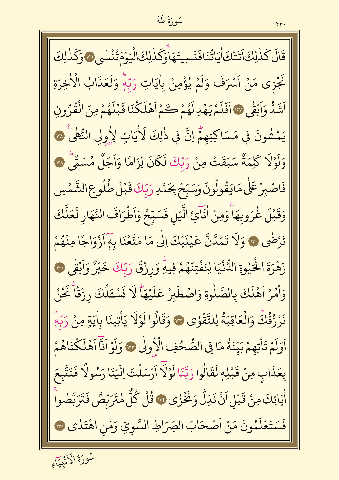 سُورَةُ طٰهٰ
٣٢٠
قَالَ كَذٰلِكَ اَتَتْكَ اٰيَاتُنَا فَنَسٖيتَهَاۚ وَكَذٰلِكَ الْيَوْمَ تُنْسٰى ﴿١٢٦﴾ وَكَذٰلِكَ
نَجْزٖى مَنْ اَسْرَفَ وَلَمْ يُؤْمِنْ بِاٰيَاتِ رَبِّهٖۜ وَلَعَذَابُ الْاٰخِرَةِ
اَشَدُّ وَاَبْقٰى ﴿١٢٧﴾ اَفَلَمْ يَهْدِ لَهُمْ كَمْ اَهْلَكْنَا قَبْلَهُمْ مِنَ الْقُرُونِ
يَمْشُونَ فٖى مَسَاكِنِهِمْۜ اِنَّ فٖى ذٰلِكَ لَاٰيَاتٍ لِاُولِى النُّهٰى ﴿١٢٨﴾
وَلَوْلَا كَلِمَةٌ سَبَقَتْ مِنْ رَبِّكَ لَكَانَ لِزَامًا وَاَجَلٌ مُسَمًّى ﴿١٢٩﴾
فَاصْبِرْ عَلٰى مَا يَقُولُونَ وَسَبِّحْ بِحَمْدِ رَبِّكَ قَبْلَ طُلُوعِ الشَّمْسِ
وَقَبْلَ غُرُوبِهَاۚ وَمِنْ اٰنَائِ الَّيْلِ فَسَبِّحْ وَاَطْرَافَ النَّهَارِ لَعَلَّكَ
تَرْضٰى ﴿١٣٠﴾ وَلَا تَمُدَّنَّ عَيْنَيْكَ اِلٰى مَا مَتَّعْنَا بِهٖٓ اَزْوَاجًا مِنْهُمْ
زَهْرَةَ الْحَيٰوةِ الدُّنْيَا لِنَفْتِنَهُمْ فٖيهِۜ وَرِزْقُ رَبِّكَ خَيْرٌ وَاَبْقٰى ﴿١٣١﴾
وَأْمُرْ اَهْلَكَ بِالصَّلٰوةِ وَاصْطَبِرْ عَلَيْهَاۜ لَا نَسْـَٔلُكَ رِزْقًاۜ نَحْنُ
نَرْزُقُكَۜ وَالْعَاقِبَةُ لِلتَّقْوٰى ﴿١٣٢﴾ وَقَالُوا لَوْلَا يَأْتٖينَا بِاٰيَةٍ مِنْ رَبِّهٖۜ
اَوَلَمْ تَأْتِهِمْ بَيِّنَةُ مَا فِى الصُّحُفِ الْاُولٰى ﴿١٣٣﴾ وَلَوْ اَنَّٓا اَهْلَكْنَاهُمْ
بِعَذَابٍ مِنْ قَبْلِهٖ لَقَالُوا رَبَّنَا لَوْلَٓا اَرْسَلْتَ اِلَيْنَا رَسُولًا فَنَتَّبِعَ
اٰيَاتِكَ مِنْ قَبْلِ اَنْ نَذِلَّ وَنَخْزٰى ﴿١٣٤﴾ قُلْ كُلٌّ مُتَرَبِّصٌ فَتَرَبَّصُواۚ
فَسَتَعْلَمُونَ مَنْ اَصْحَابُ الصِّرَاطِ السَّوِىِّ وَمَنِ اهْتَدٰى ﴿١٣٥﴾
سُورَةُ الْاَنْبِيَاءِ